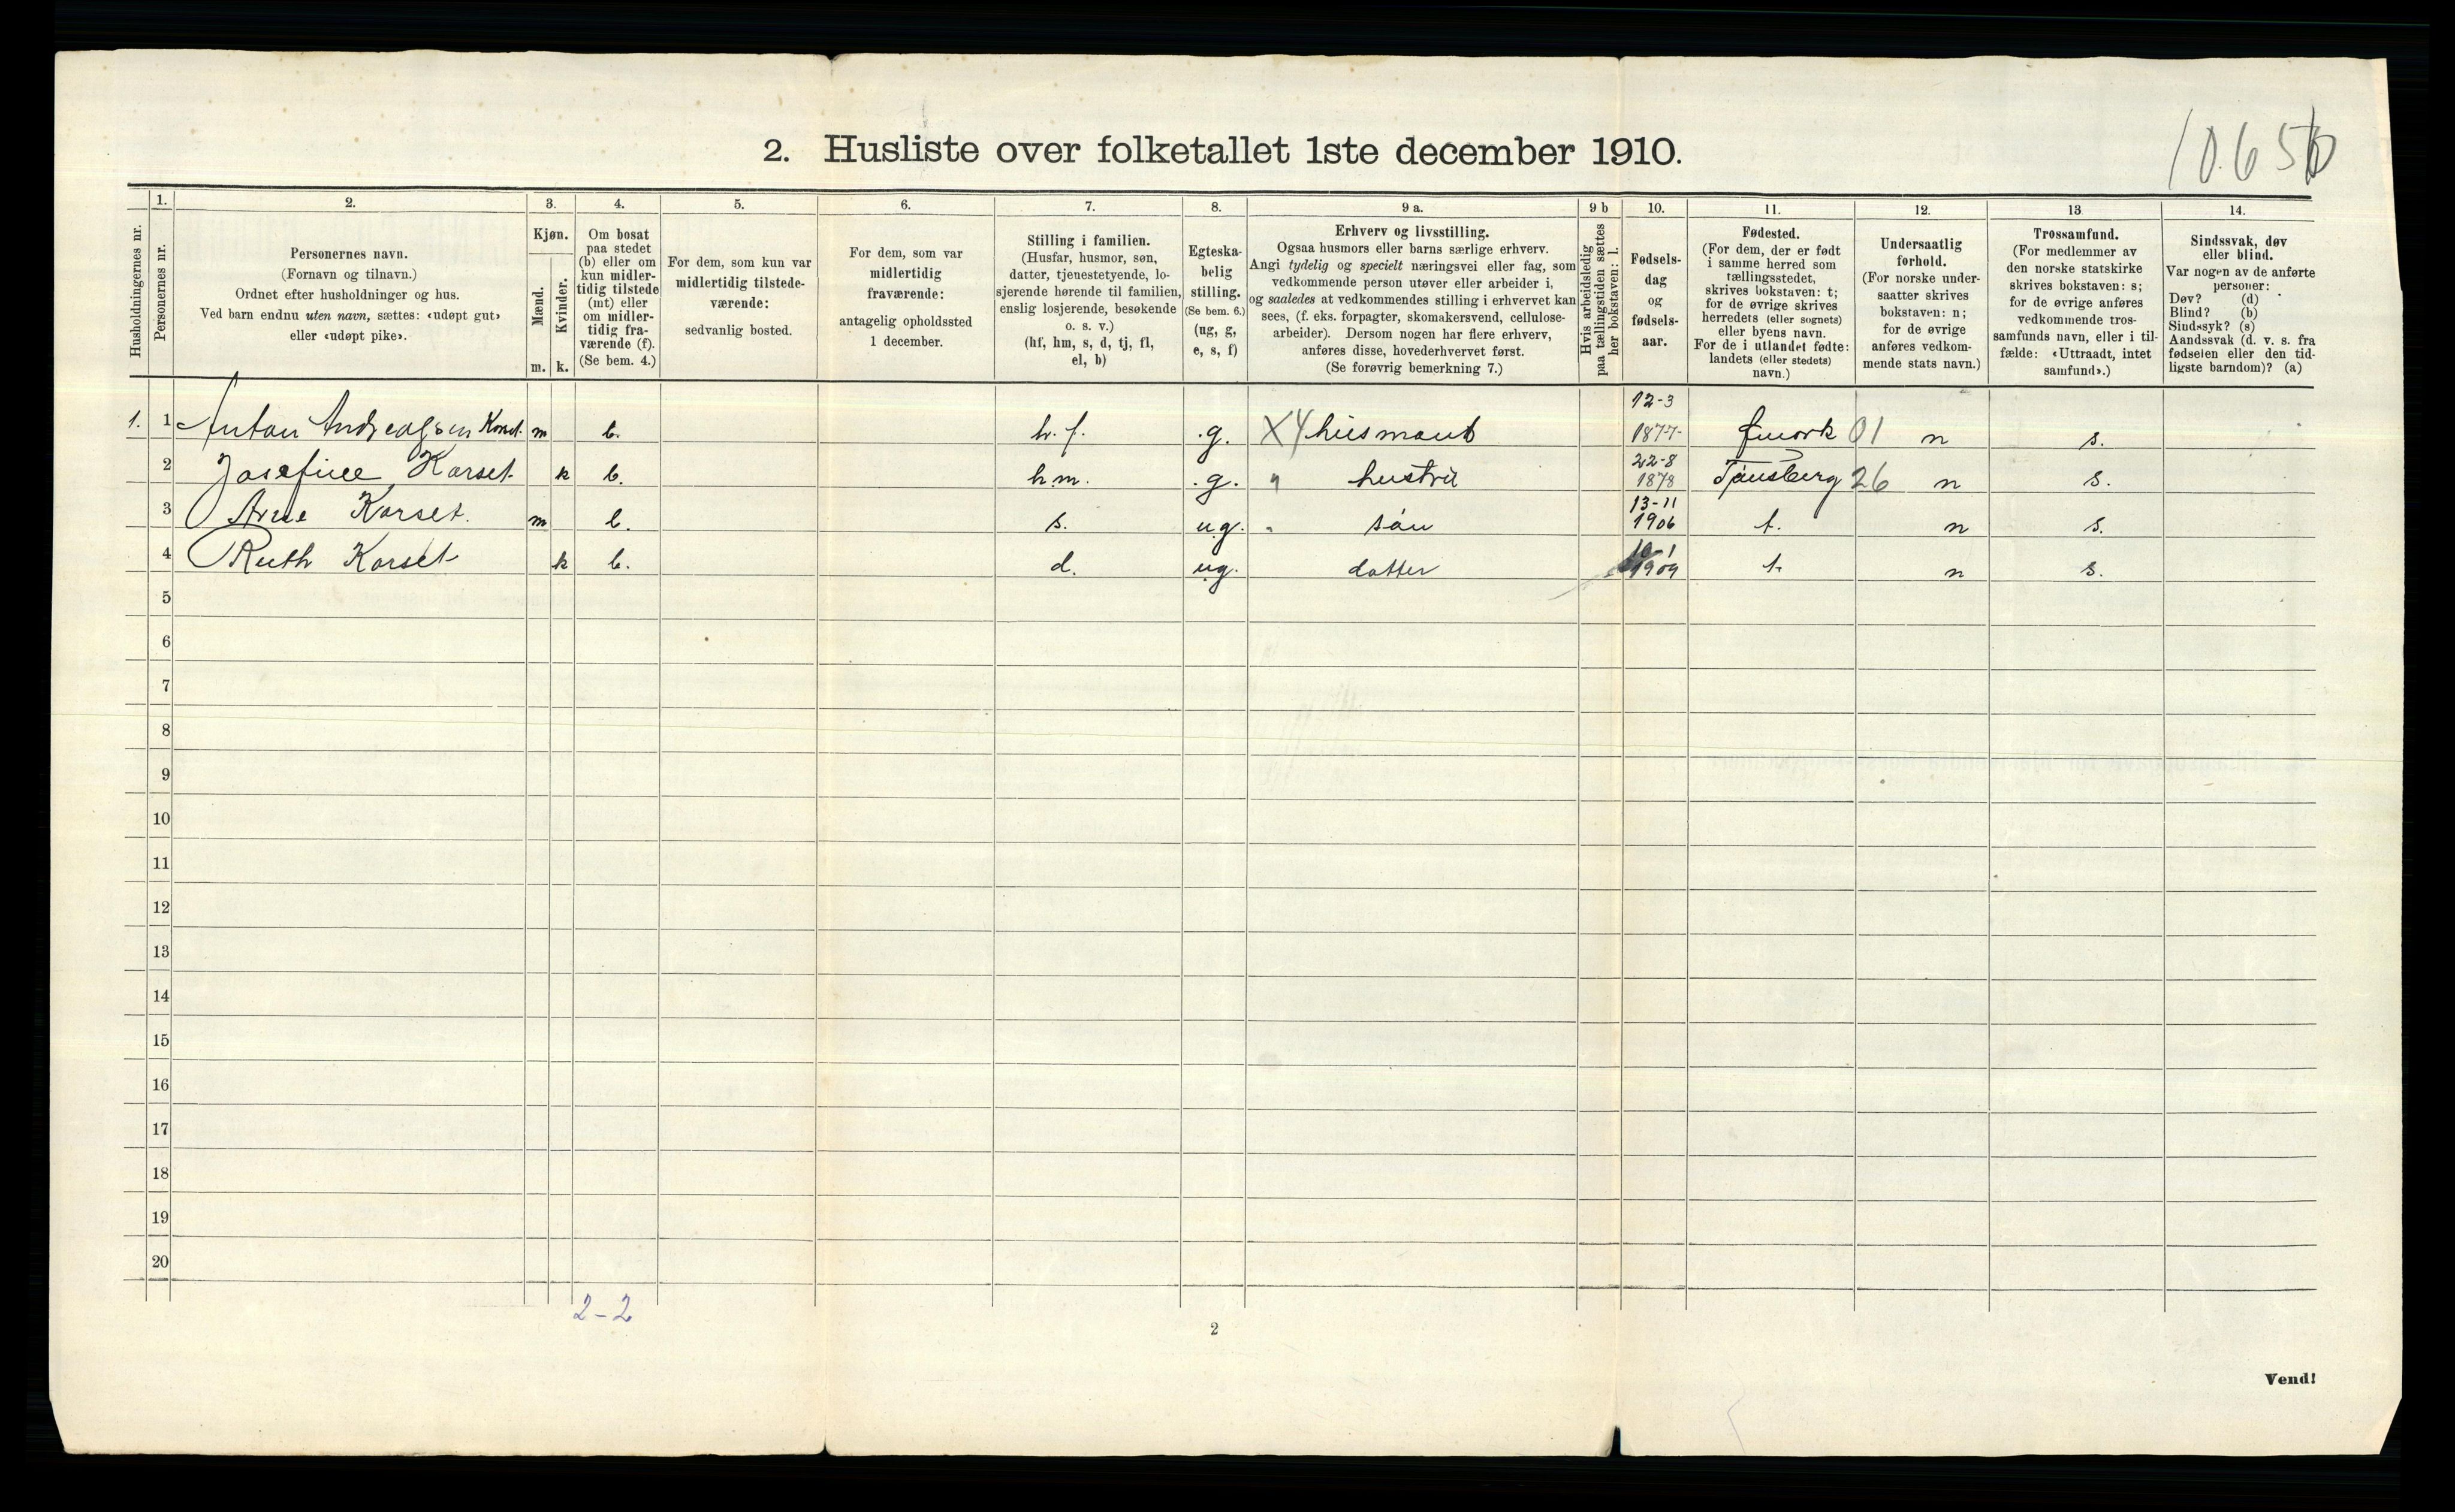 2. Husliste over folketallet 1ste december 1910.
Husholdningernes nr.
1.
Personernes nr.
2.
Personernes navn.
(Fornavn og tilnavn.)
Ordnet efter husholdninger og hus.
Ved barn endnu uten navn, sættes: «udøpt gut»
eller «udøpt pike».
3.
Kjøn.
Mænd.
Kvinder.
m. k.
4.
Om bosat
paa stedet
(b) eller om
kun midler-
tidig tilstede
(mt) eller
om midler-
tidig fra-
værende (f).
(Se bem. 4.)
5.
For dem, som kun var
midlertidig tilstede-
værende:
sedvanlig bosted.
6.
For dem, som var
midlertidig
fraværende:
antagelig opholdssted
1 december.
7.
Stilling i familien.
(Husfar, husmor, søn,
datter, tjenestetyende, lo-
sjerende hørende til familien,
enslig losjerende, besøkende
o. s. v.)
(hf, hm, s, d, tj, fl,
el, b)
8.
Egteska-
belig
stilling.
(Se bem. 6.)
(ug, g,
e, s, f)
9 a.
Erhverv og livsstilling.
Ogsaa husmors eller barns særlige erhverv.
Angi tydelig og specielt næringsvei eller fag, som
vedkommende person utøver eller arbeider i,
og saaledes at vedkommendes stilling i erhvervet kan
sees, (f. eks. forpagter, skomakersvend, cellulose-
arbeider). Dersom nogen har flere erhverv,
anføres disse, hovederhvervet først.
(Se forøvrig bemerkning 7.)
9 b
Hvis arbeidsledig
paa tællingstiden sættes
her bokstaven: l.
10.
Fødsels-
dag
og
fødsels-
aar.
11.
Fødested.
(For dem, der er født
i samme herred som
tællingsstedet,
skrives bokstaven: t;
for de øvrige skrives
herredets (eller sognets)
eller byens navn.
For de i utlandet fødte:
landets (eller stedets)
navn.)
12.
Undersaatlig
forhold.
(For norske under-
saatter skrives
bokstaven: n;
for de øvrige
anføres vedkom-
mende stats navn.)
13
Trossamfund.
(For medlemmer av
den norske statskirke
skrives bokstaven: s;
for de øvrige anføres
vedkommende tros-
samfunds navn, eller i til-
fælde: «Uttraadt, intet
samfund».)
14.
Sindssvak, døv
eller blind.
Var nogen av de anførte
personer:
Døv? (d)
Blind? (b)
Sindssyk? (s)
Aandssvak (d. v. s. fra
fødselen eller den tid-
ligste barndom)? (a)
1. 1 Anton Andreassen Korset m b. h. f. g. X4 12-3 1877 01 n s.
2 Josefine Korset k b. h m. g. " hustru 22-8 1878 Tønsberg 26 n s.
3 Arne Korset. m b. s. ug. " søn 13-11 1906 t. n s.
4 Ruth Korset k b. d. ug. datter 10-1 1909 t. n s.
5
6
7
8
9
10
11
12
13
14
15
16
17
18
19
20
2-2
2
Vend!